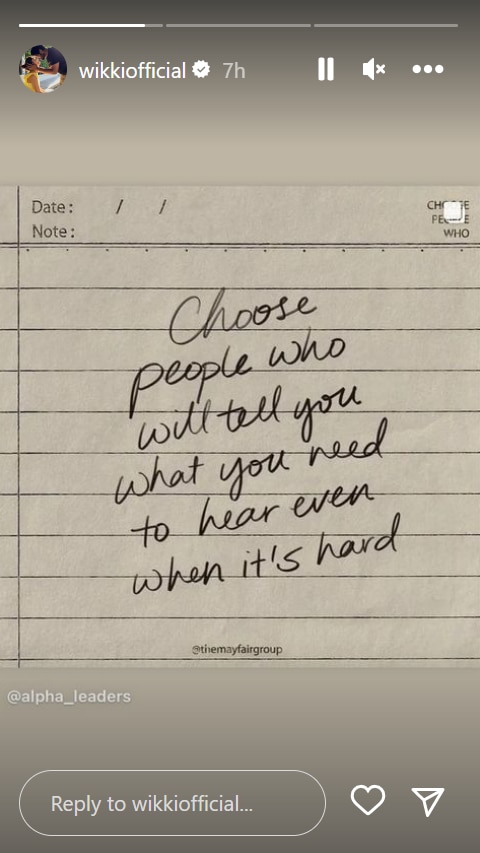 wikkiofficial 7h
Date: / /
Note:
CHOOSE
PEOPLE
WHO
Choose
people who
will tell you
what you need
to hear even
when it's hard
@themayfairgroup
@alpha_leaders
Reply to wikkiofficial...